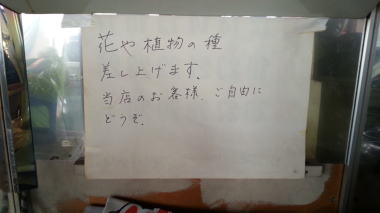 花や植物の種
差し上げます。
当店のお客様、ご自由に
どうぞ。